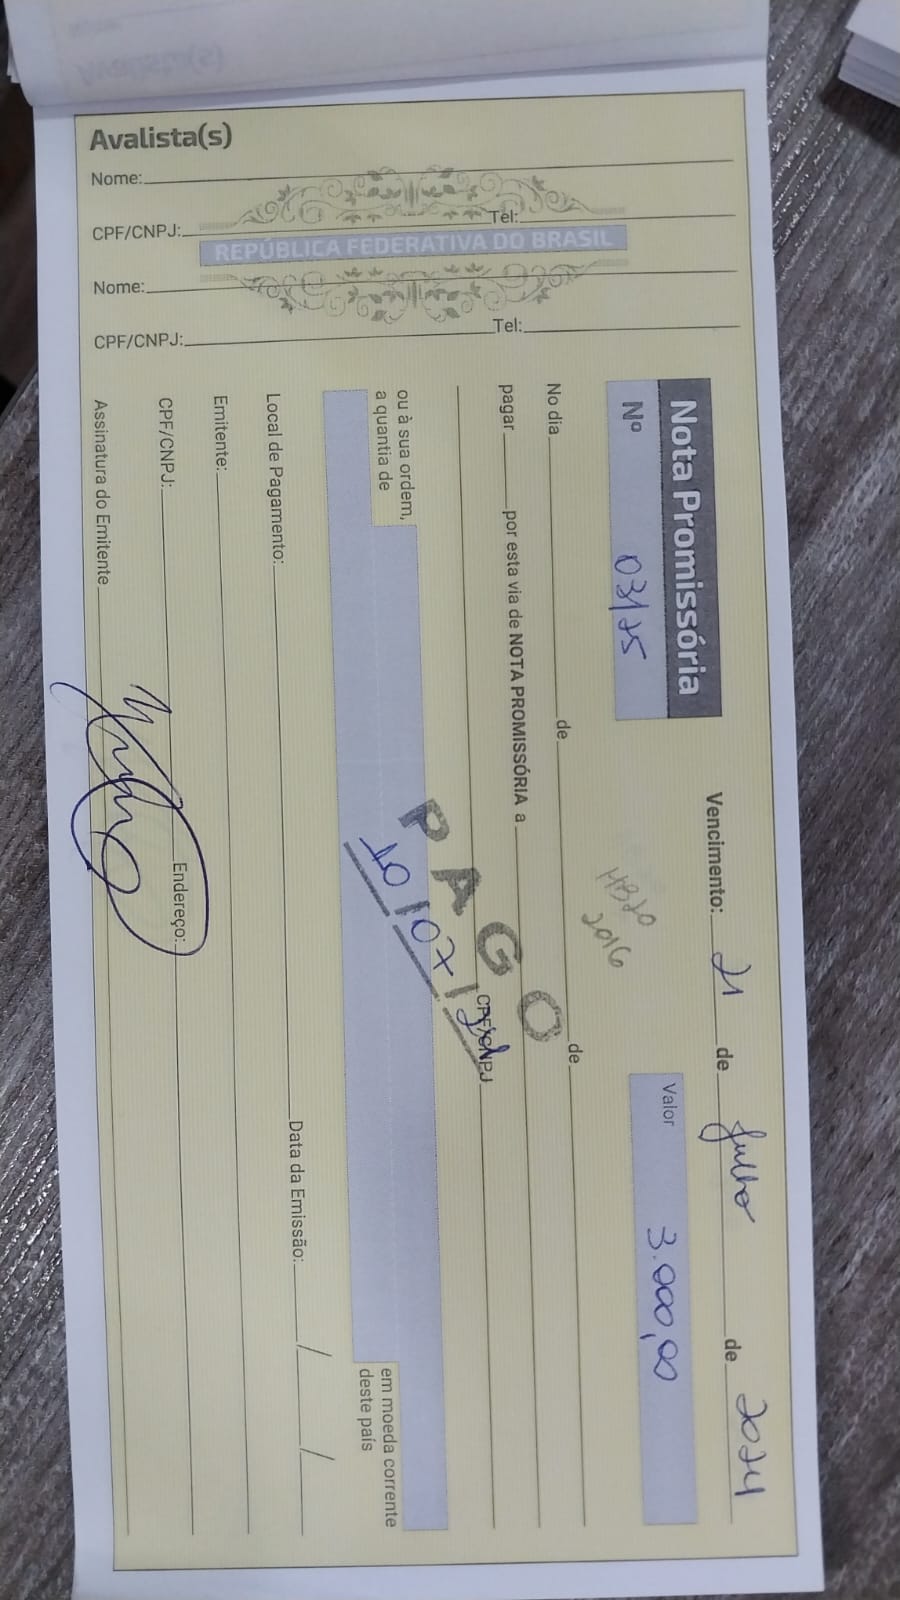 Avalista(s)
Nome:
CPF/CNPJ: Tel:
REPÚBLICA FEDERATIVA DO BRASIL
Nome:
CPF/CNPJ: Tel:
Nota Promissória
Vencimento: 21 de Julho de 2024
Nº 03/25
Valor 3.000,00
HB20
2016
No dia de de
pagar por esta via de NOTA PROMISSÓRIA a
CPF/CNPJ
ou à sua ordem,
a quantia de
PAGO
10/07/24
em moeda corrente
deste país
Local de Pagamento: Data da Emissão: / /
Emitente:
CPF/CNPJ: Endereço:
Assinatura do Emitente